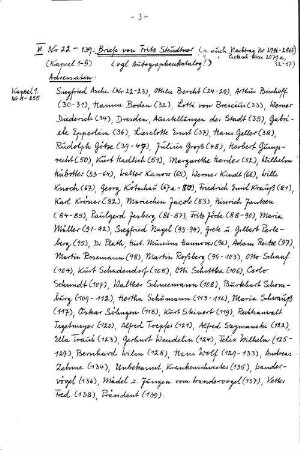 - 3 -
II. Nr 22 - 139: Briefe von Fritz Stüdtner (s. auch Nachtrag Nr
(Kapsel 1-9) (vgl. Autographenkatalog!)
Adressaten:
Kapsel 1 Siegfried Asche (Nr 22-23), Ottilia Berckt (24-29), Arthur Bischoff
(30-31), Hanna Boden (32), Lotti von (33), Werner
Diederich (34), Dresden, Ausstellungen der Stadt (35), Gabri-
ele Epperlein (36), Lieselotte Ernst (37), Hans Geller (38),
Rudolph Götze (39-47), Julius Groß (48), Herbert Gümp-
recht (50), Kurt Hadlich (51), Margarethe Harder (52), Wilhelm
(53-64), Walter Kunow (65), Werner Kunde (66), Willi
Knoch (67), Georg (67a-80), Friedrich Emil Krauß (81),
Karl Kröner (82), Mariechen Jacobi (83), Hinrich Jantzen
(84-85), Paulgerd Jesberg (86-87), Fritz Jöde (88-90), Maria
Müller (91-92), Siegfried Nagel (93-94), Grete u. Gilbert Perle-
berg (95), Dr. Plath, Hist. Museum Hannover (96), Adam (97)
Martin Rosemann (98), Martin Roßberg (99-103), Otto Scharf
(104), Kurt Schadendorf (105), Oth. Schlittka (106), Carlo
Schmidt (107), Walther Schneemann (108), Burkhart Schom-
burg (109-112), Hertha Schümann (113-116), Maria
(117), Oskar Söhngen (118), Kurt Steinert (119), Reichsanwalt
Tegetmeyer (120), Alfred Toepfer (121), Alfred Szymanski (122),
Ella (123), Gerhart Wendelin (124), Felix Wilhelm (125-
127), Bernhard Wilm (128), Hans Wolf (129-133), Andreas
Zehme (134), Unbekannt, Krankenschwester (135), Wander-
vögel (136), Mädel u. Jungen vom Wandervogel (137), Vetter
Fred (138), Präsident (139).